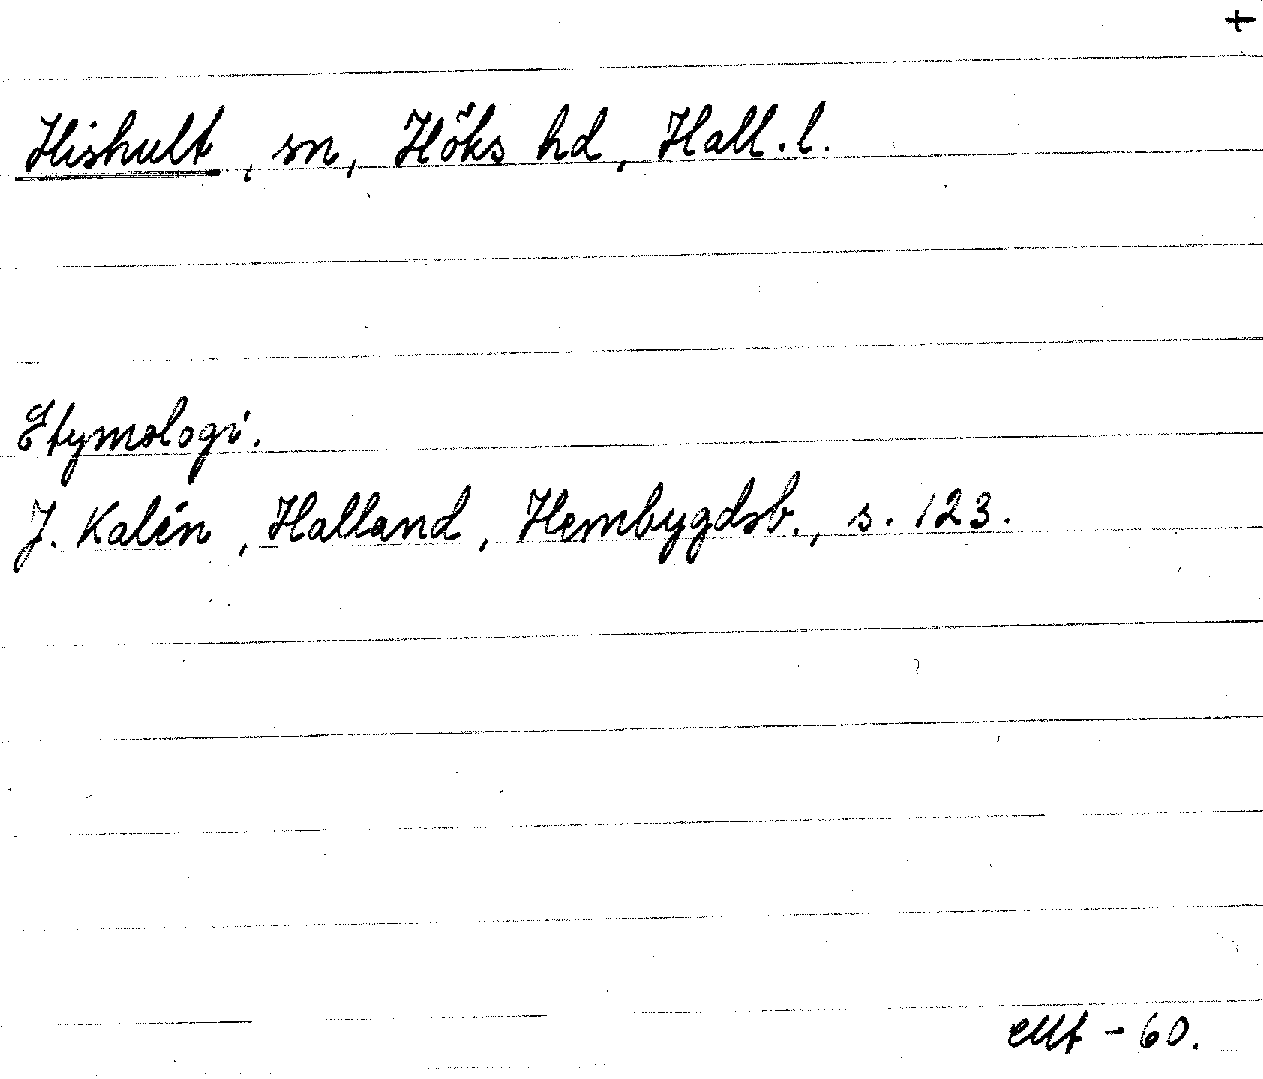 +
Hishult, sn, Höks hd, Hall. l.
Etymologi.
J. Kalén, Halland, Hembygdsb., s. 123.
- 60.